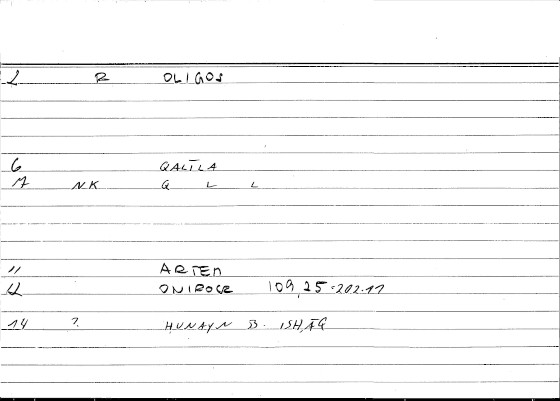 2 R OLIGOS
6 QALĪLA
M NK Q L L
11 ARTEM
12 ONIROCR 109,25=202.11
14 ? HUNAYN B. ISHĀQ